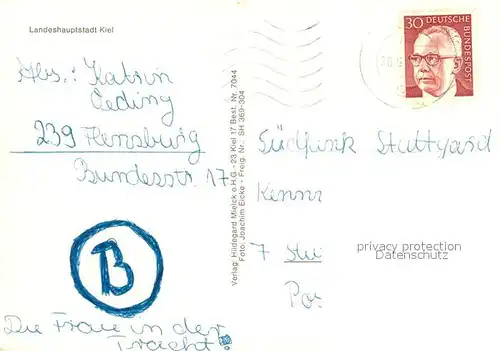 Landeshauptstadt Kiel
Abs.: Katrin
Oeding
239 Flensburg
Bundesstr. 17
B
Die Frau in der
Tracht!
Verlag: Hildegard Mielck o.H.G. - 23 Kiel 17 Best. Nr. 7044
Foto: Joachim Eicke - Freig. Nr. SH 369-304
30 DEUTSCHE
BUNDESPOST
Südfunk Stuttgard
Kenn
7 Stu
Pos
privacy protection
Datenschutz